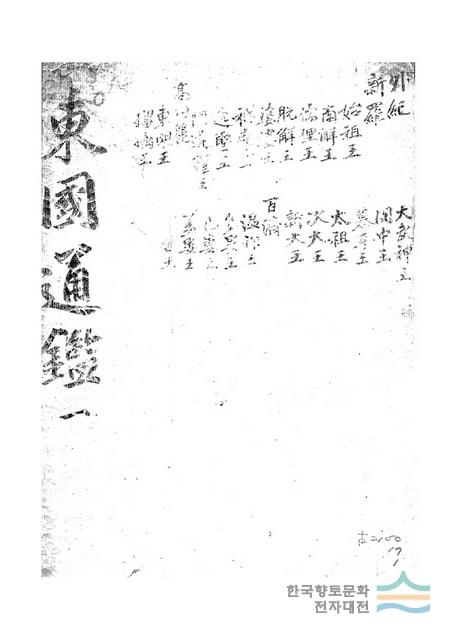 外紀
新羅
始祖王
南解王
儒理王
脫解王
逸聖王
高句麗
東明王
大武神王
閔中王
慕本王
太祖王
次大王
新大王
百濟
溫祚王
多婁王
己婁王
蓋婁王
東國通鑑 一
한국향토문화
전자대전